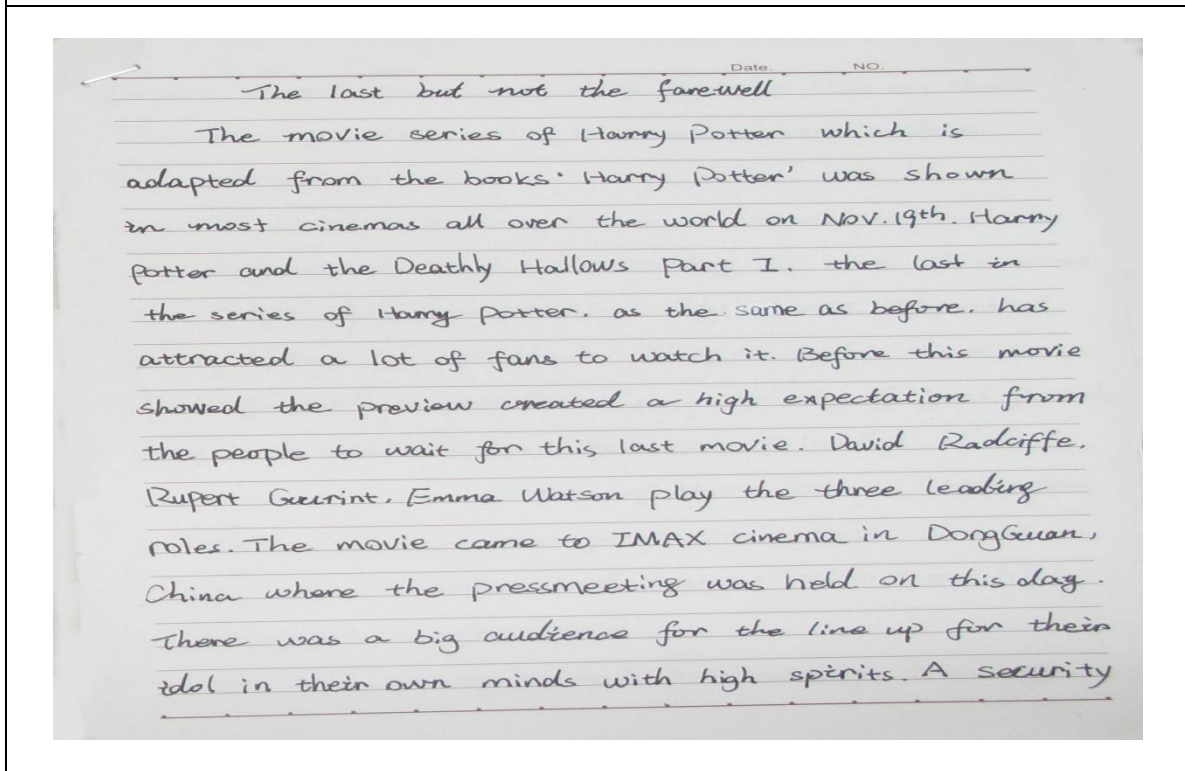 Date. NO.
The last but not the farewell
The movie series of Harry Potter which is
adapted from the books 'Harry Potter' was shown
in most cinemas all over the world on Nov. 19th. Harry
Potter and the Deathly Hallows Part I. the last in
the series of Harry Potter. as the same as before. has
attracted a lot of fans to watch it. Before this movie
showed the preview created a high expectation from
the people to wait for this last movie. David Radciffe.
Rupert Emma Watson play the three leading
roles. The movie came to IMAX cinema in DongGuan,
China where the pressmeeting was held on this day.
There was a big audience for the line up for their
idol in their own minds with high spirits. A security